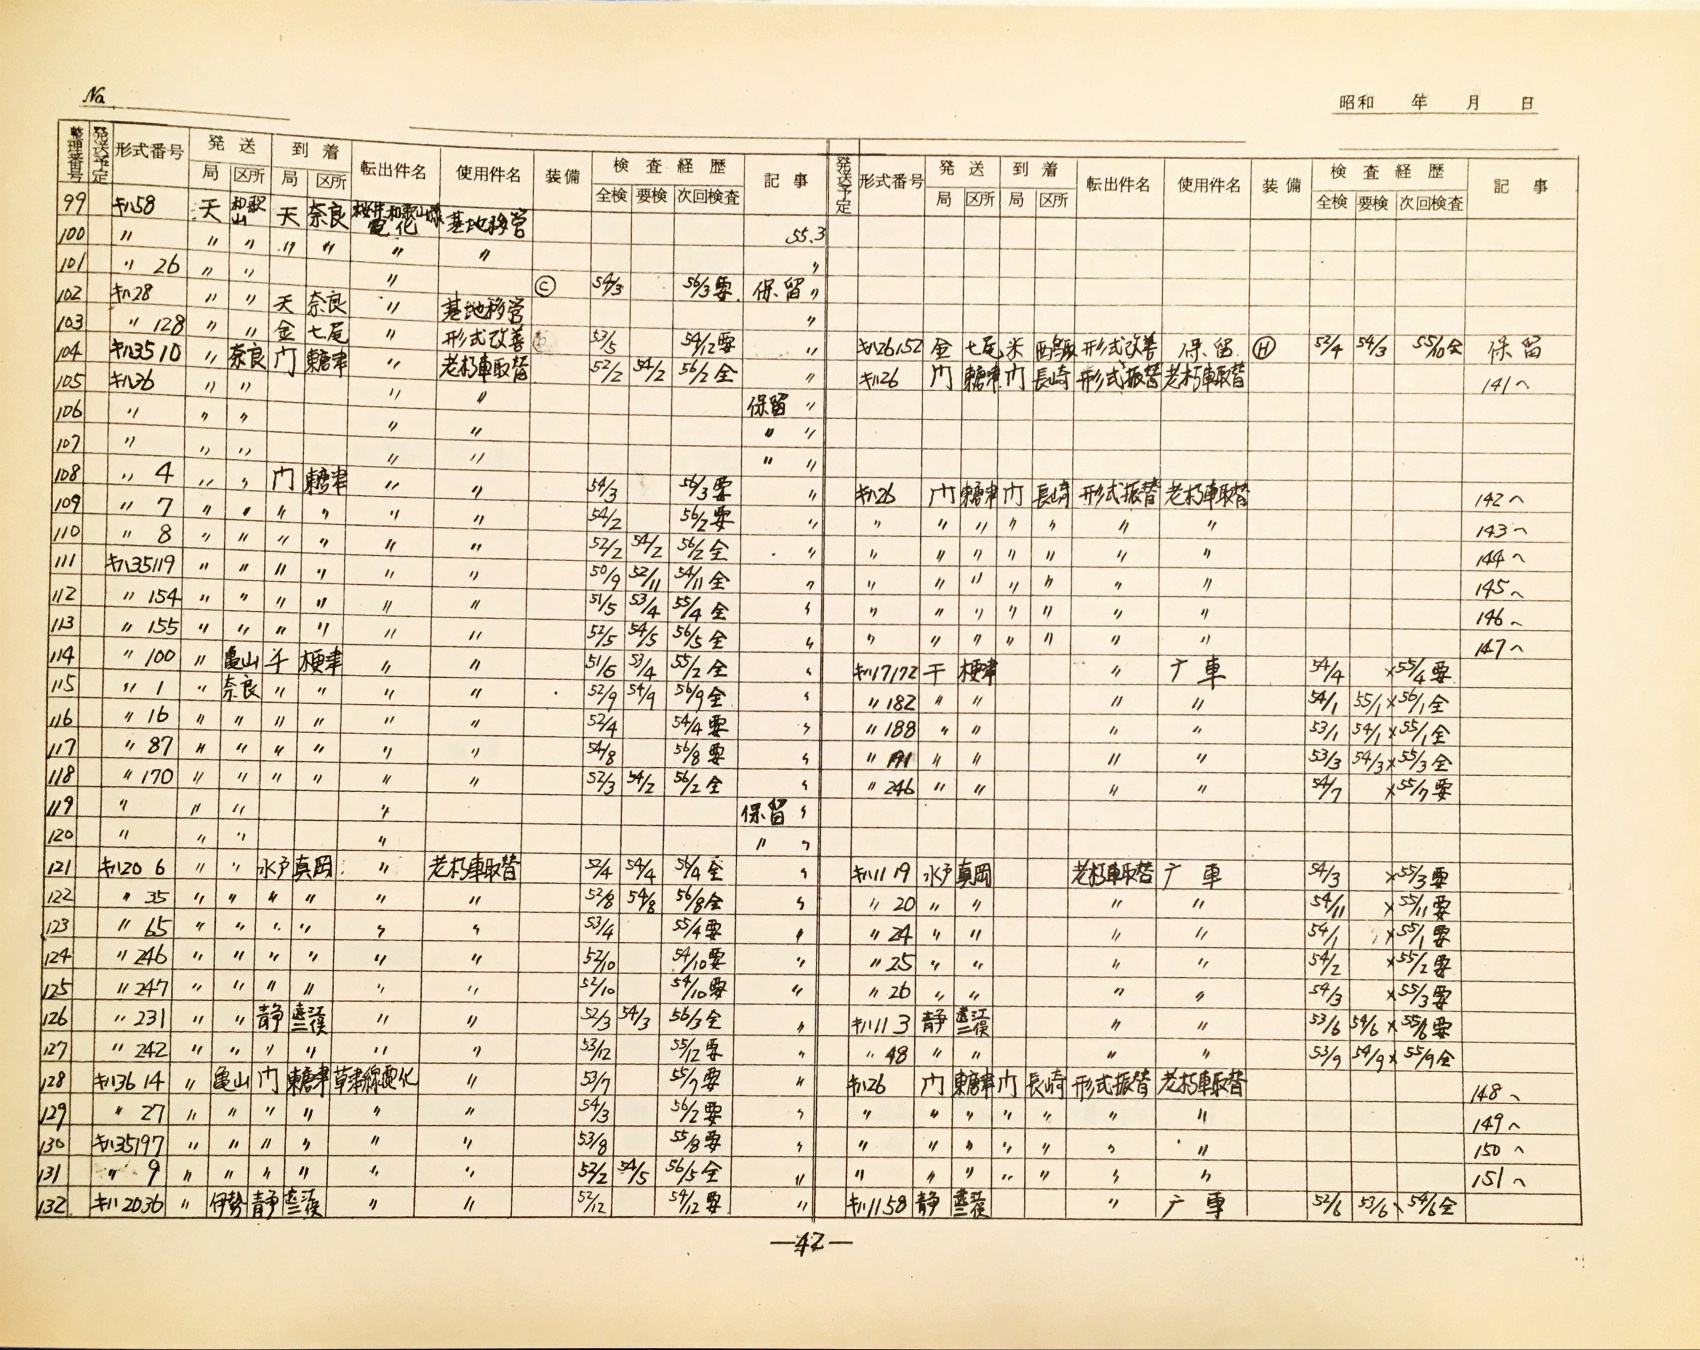 No.
昭和 年 月 日
整理番号 発送予定 形式番号 発送 到着 転出件名 使用件名 装備 検査経歴 記事 発送予定 形式番号 発送 到着 転出件名 使用件名 装備 検査経歴 記事
局 区所 局 区所 全検 要検 次回検査 局 区所 局 区所 全検 要検 次回検査
99 キハ58 天 和歌山 天 奈良 桜井和歌山線電化 基地移営
100 〃 〃 〃 〃 〃 〃 〃 55.3
101 〃 26 〃 〃 〃 〃
102 キハ28 〃 〃 天 奈良 〃 基地移営 Ⓒ 54/3 56/3要 保留 〃
103 〃 128 〃 〃 金 七尾 〃 形式改善 53/5 54/12要 〃 キハ26152 金 七尾 米 西鳥取 形式改善 保留 Ⓗ 52/4 54/3 55/10全 保留
104 キハ35 10 〃 奈良 門 東唐津 〃 老朽車取替 52/2 54/2 56/2全 〃 キハ26 門 東唐津 門 長崎 形式振替 老朽車取替 141へ
105 キハ36 〃 〃 〃 〃 保留 〃
106 〃 〃 〃 〃 〃 〃 〃
107 〃 〃 〃 〃 〃 〃 〃
108 〃 4 〃 〃 門 東唐津 〃 〃 54/3 56/3要 〃 キハ26 門 東唐津 門 長崎 形式振替 老朽車取替 142へ
109 〃 7 〃 〃 〃 〃 〃 〃 54/2 56/2要 〃 〃 〃 〃 〃 〃 〃 〃 143へ
110 〃 8 〃 〃 〃 〃 〃 〃 52/2 54/2 56/2全 〃 〃 〃 〃 〃 〃 〃 〃 144へ
111 キハ35119 〃 〃 〃 〃 〃 〃 50/9 52/11 54/11全 〃 〃 〃 〃 〃 〃 〃 〃 145へ
112 〃 154 〃 〃 〃 〃 〃 〃 51/5 53/4 55/4全 〃 〃 〃 〃 〃 〃 〃 〃 146へ
113 〃 155 〃 〃 〃 〃 〃 〃 52/5 54/5 56/5全 〃 〃 〃 〃 〃 〃 〃 〃 147へ
114 〃 100 〃 亀山 千 木更津 〃 〃 51/6 53/4 55/2全 〃 キハ17172 千 木更津 〃 廃車 54/4 ×55/4要
115 〃 1 〃 奈良 〃 〃 〃 〃 52/9 54/9 56/9全 〃 〃 182 〃 〃 〃 〃 54/1 55/1 ×56/1全
116 〃 16 〃 〃 〃 〃 〃 〃 52/4 54/4要 〃 〃 188 〃 〃 〃 〃 53/1 54/1 ×55/1全
117 〃 87 〃 〃 〃 〃 〃 〃 54/8 56/8要 〃 〃 191 〃 〃 〃 〃 53/3 54/3 ×55/3全
118 〃 170 〃 〃 〃 〃 〃 〃 52/3 54/2 56/2全 〃 〃 246 〃 〃 〃 〃 54/7 ×55/7要
119 〃 〃 〃 〃 保留 〃
120 〃 〃 〃 〃 〃 〃
121 キハ20 6 〃 〃 水戸 真岡 〃 老朽車取替 52/4 54/4 56/4全 〃 キハ11 19 水戸 真岡 老朽車取替 廃車 54/3 ×55/3要
122 〃 35 〃 〃 〃 〃 〃 〃 52/8 54/8 56/8全 〃 〃 20 〃 〃 〃 〃 54/11 ×55/11要
123 〃 65 〃 〃 〃 〃 〃 〃 53/4 55/4要 〃 〃 24 〃 〃 〃 〃 54/1 ×55/1要
124 〃 246 〃 〃 〃 〃 〃 〃 52/10 54/10要 〃 〃 25 〃 〃 〃 〃 54/2 ×55/2要
125 〃 247 〃 〃 〃 〃 〃 〃 52/10 54/10要 〃 〃 26 〃 〃 〃 〃 54/3 ×55/3要
126 〃 231 〃 〃 静 遠江二俣 〃 〃 52/3 54/3 56/3全 〃 キハ11 3 静 遠江二俣 〃 〃 53/6 54/6 ×55/6要
127 〃 242 〃 〃 〃 〃 〃 〃 53/12 55/12要 〃 〃 48 〃 〃 〃 〃 53/9 54/9 ×55/9全
128 キハ36 14 〃 亀山 門 東唐津 草津線電化 〃 53/7 55/7要 〃 キハ26 門 東唐津 門 長崎 形式振替 老朽車取替 148へ
129 〃 27 〃 〃 〃 〃 〃 〃 54/3 56/2要 〃 〃 〃 〃 〃 〃 〃 〃 149へ
130 キハ35197 〃 〃 〃 〃 〃 〃 53/8 55/8要 〃 〃 〃 〃 〃 〃 〃 〃 150へ
131 〃 9 〃 〃 〃 〃 〃 〃 52/2 54/5 56/5全 〃 〃 〃 〃 〃 〃 〃 〃 151へ
132 キハ2036 〃 伊勢 静 遠江二俣 〃 〃 52/12 54/12要 〃 キハ1158 静 遠江二俣 〃 廃車 52/6 53/6 × 54/6全
—42—